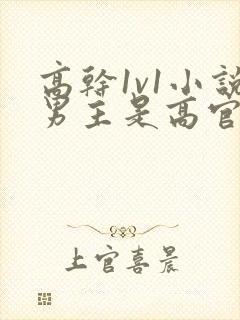 高幹1v1小說
男主是高官
上官喜晨